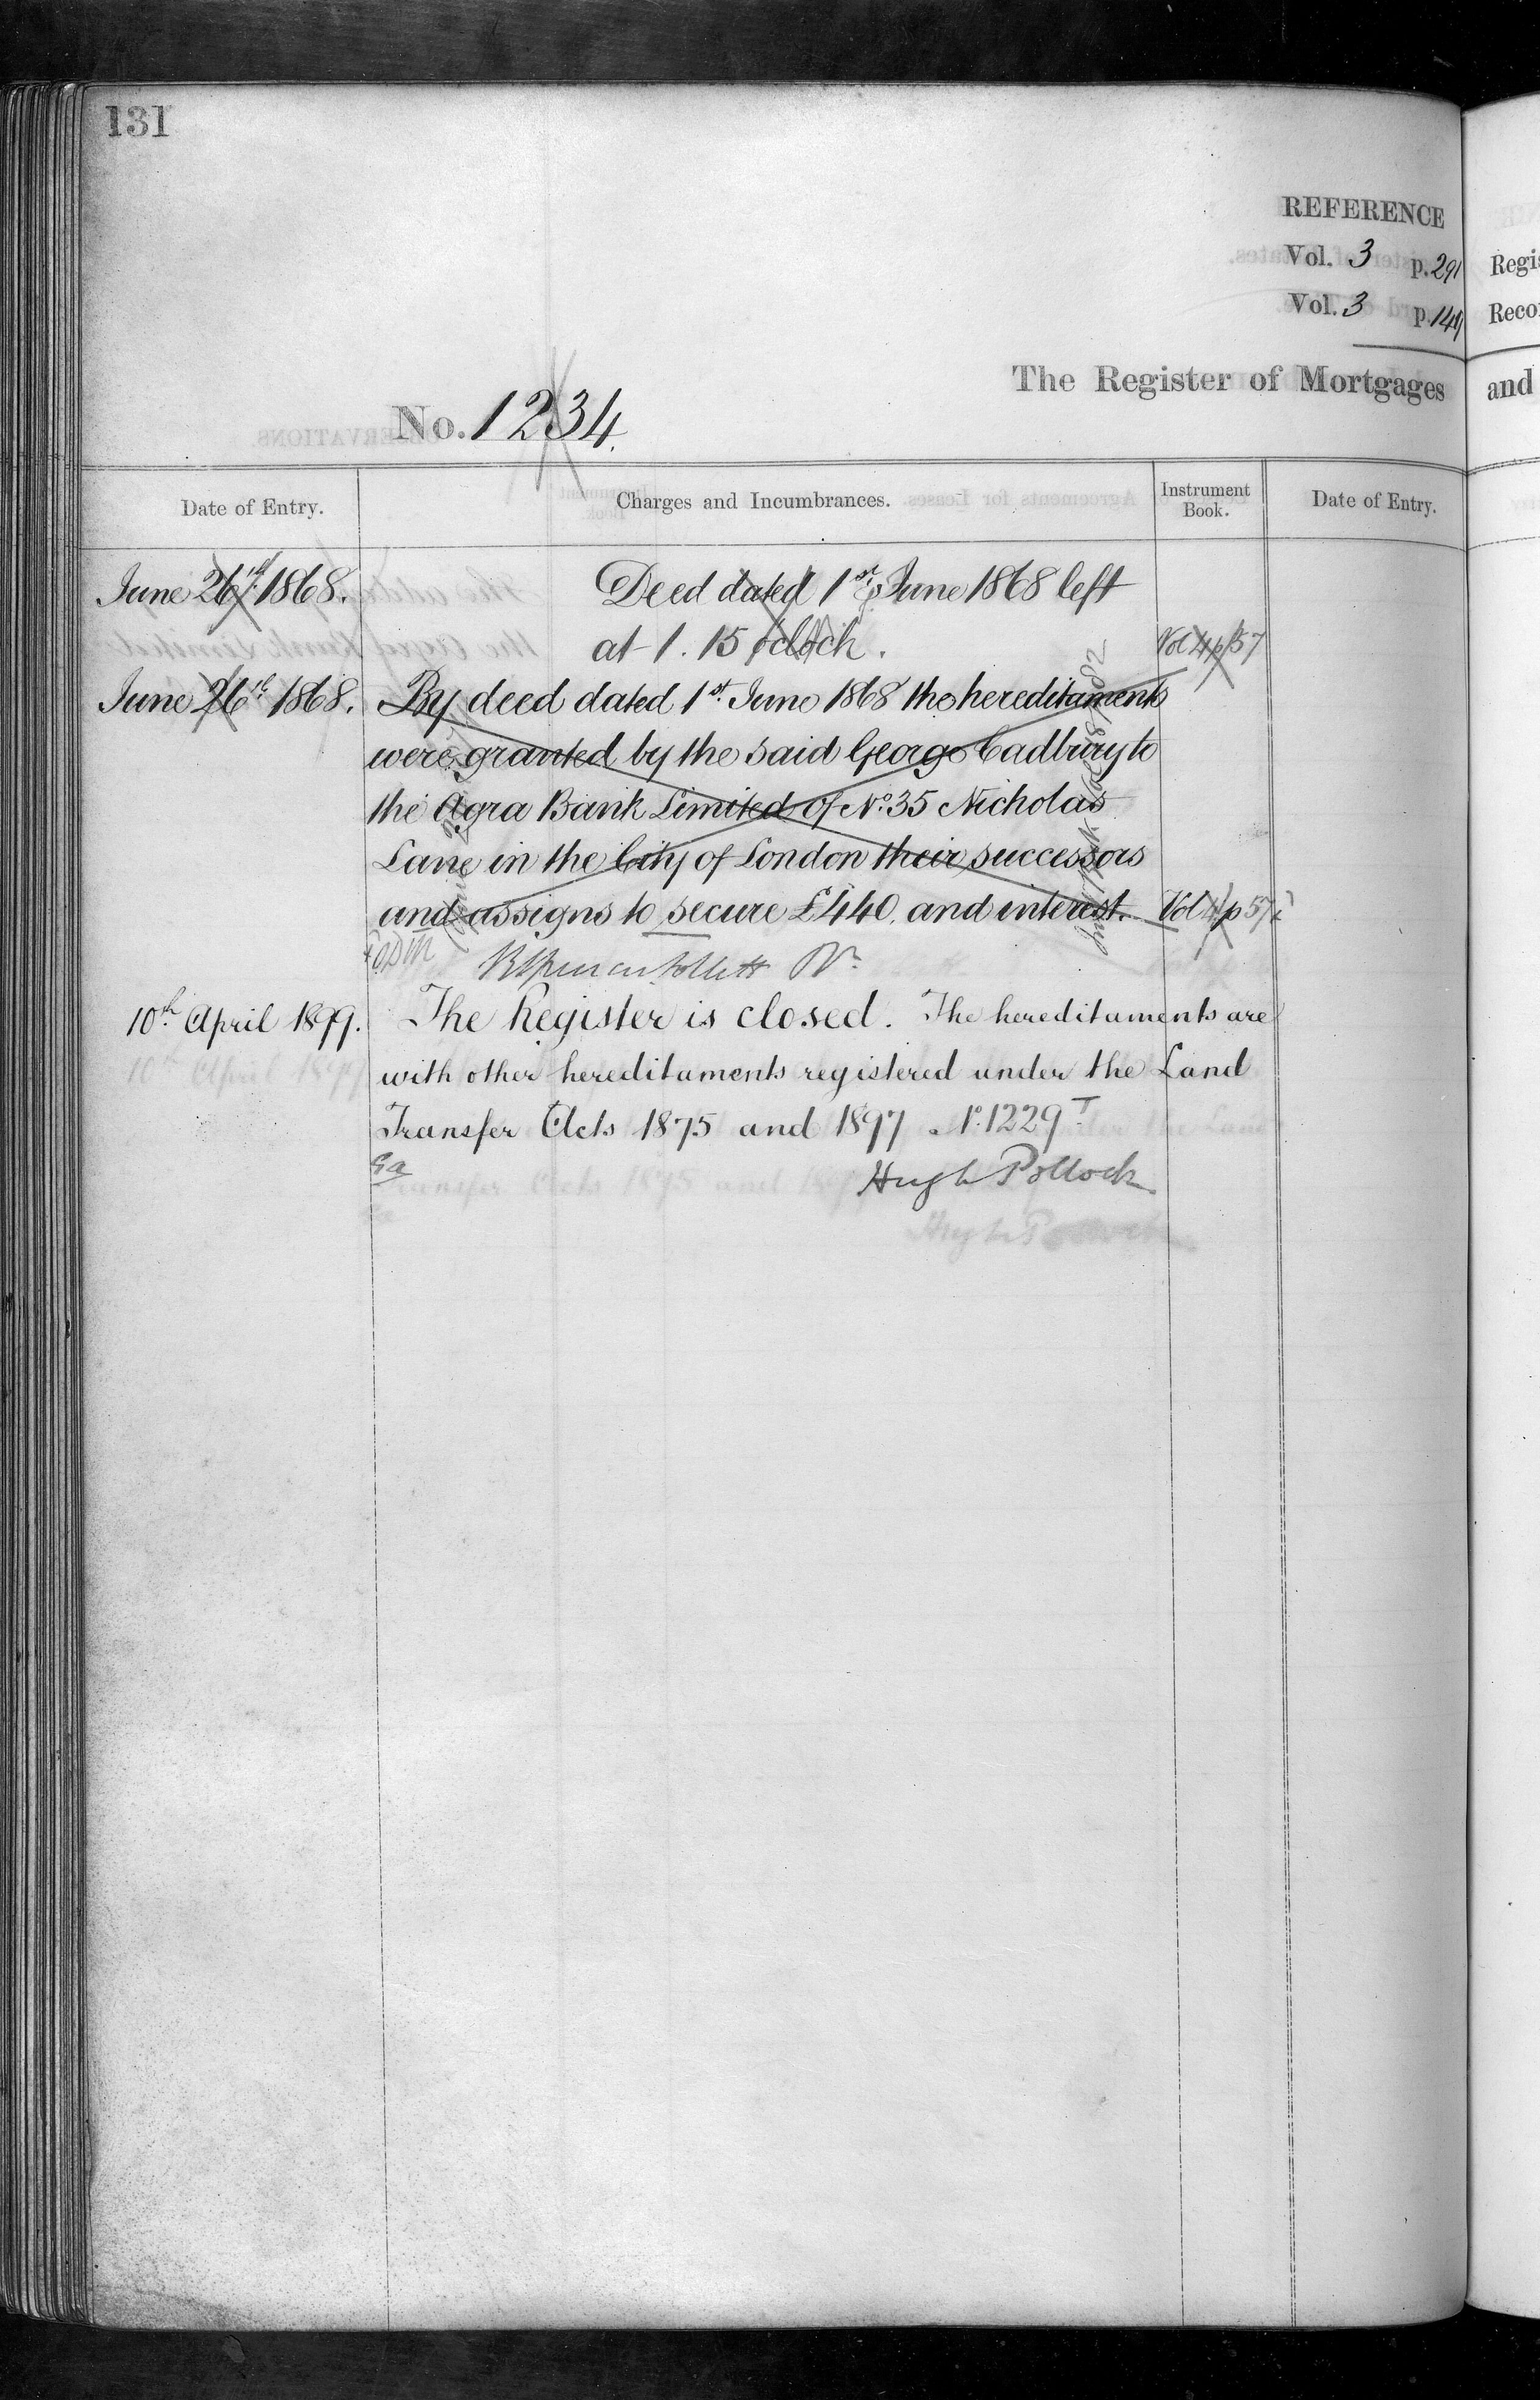 131
REFERENCE
Vol. 3 p. 291
Vol. 3 p. 149
Regis
Recor
The Register of Mortgages
and
No. 1234.
Date of Entry.
Charges and Incumbrances.
Instrument
Book.
Date of Entry.
June 26th 1868.
Deed dated 1st June 1868 left
at 1.15 oclock.
Vol 4 p 57
June 26th 1868.
By deed dated 1st June 1868 the hereditaments
were granted by the said George Cadbury to
the Agra Bank Limited of No. 35 Nicholas
Lane in the City of London their successors
and assigns to secure £440. and interest.
Vol 4 p 57
10th April 1899.
The Register is closed. The hereditaments are
with other hereditaments registered under the Land
Transfer Acts 1875 and 1897 No. 1229 T
Hugh Pollock